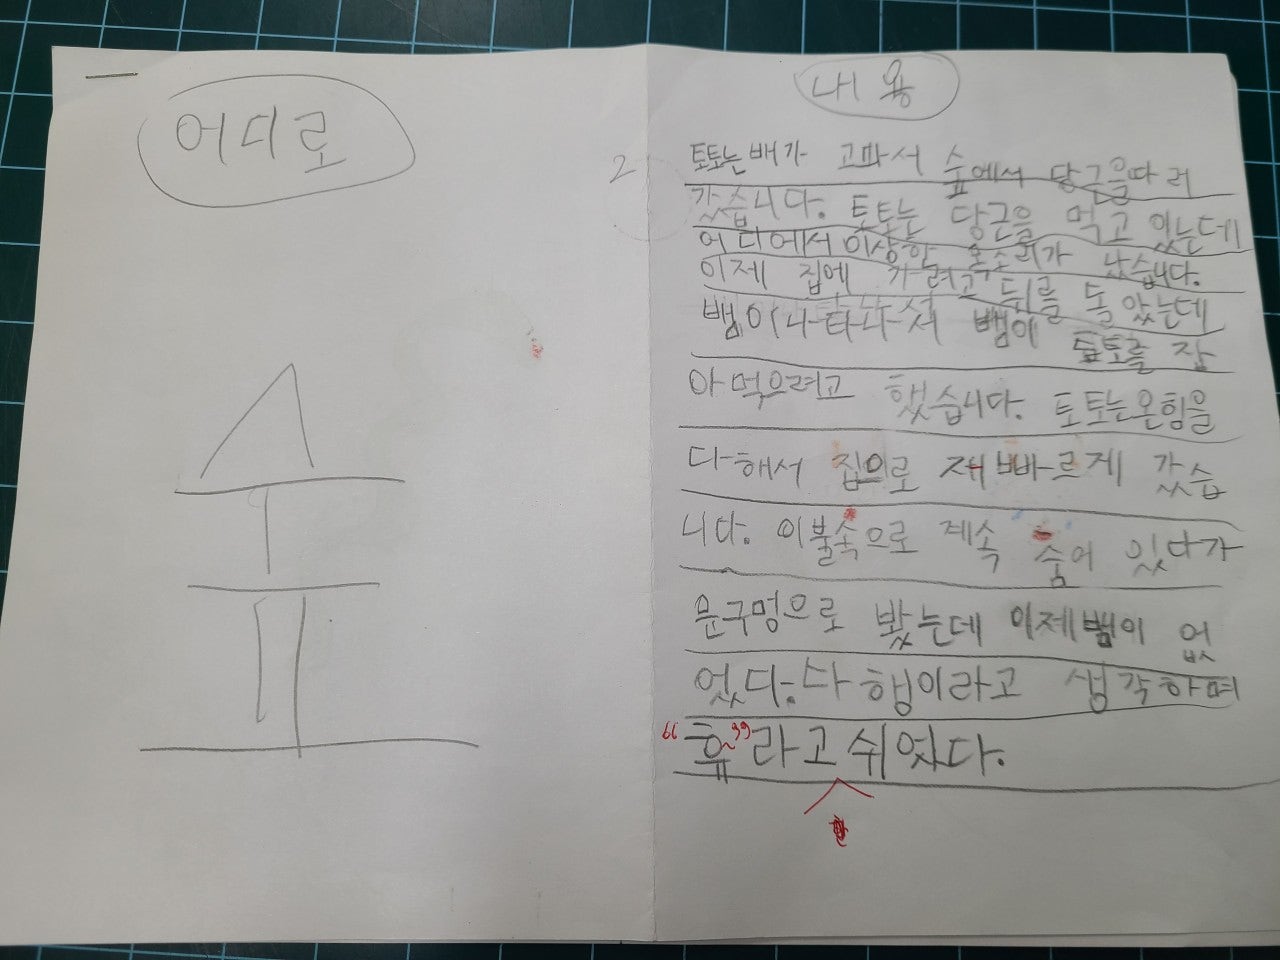 어디로
내용
2
토토는 배가 고파서 숲에서 당근을따러
갔습니다. 토토는 당근을 먹고 있는데
어디에서 이상한 목소리가 났습니다.
이제 집에 가려고 뒤를 돌았는데
뱀이나타나서 뱀이 토토를 잡
아먹으려고 했습니다. 토토는온힘을
다해서 집으로 재빠르게 갔습
니다. 이불속으로 계속 숨어 있다가
문구멍으로 봤는데 이제뱀이 없
었다. 다행이라고 생각하며
“휴~”라고 쉬였다.